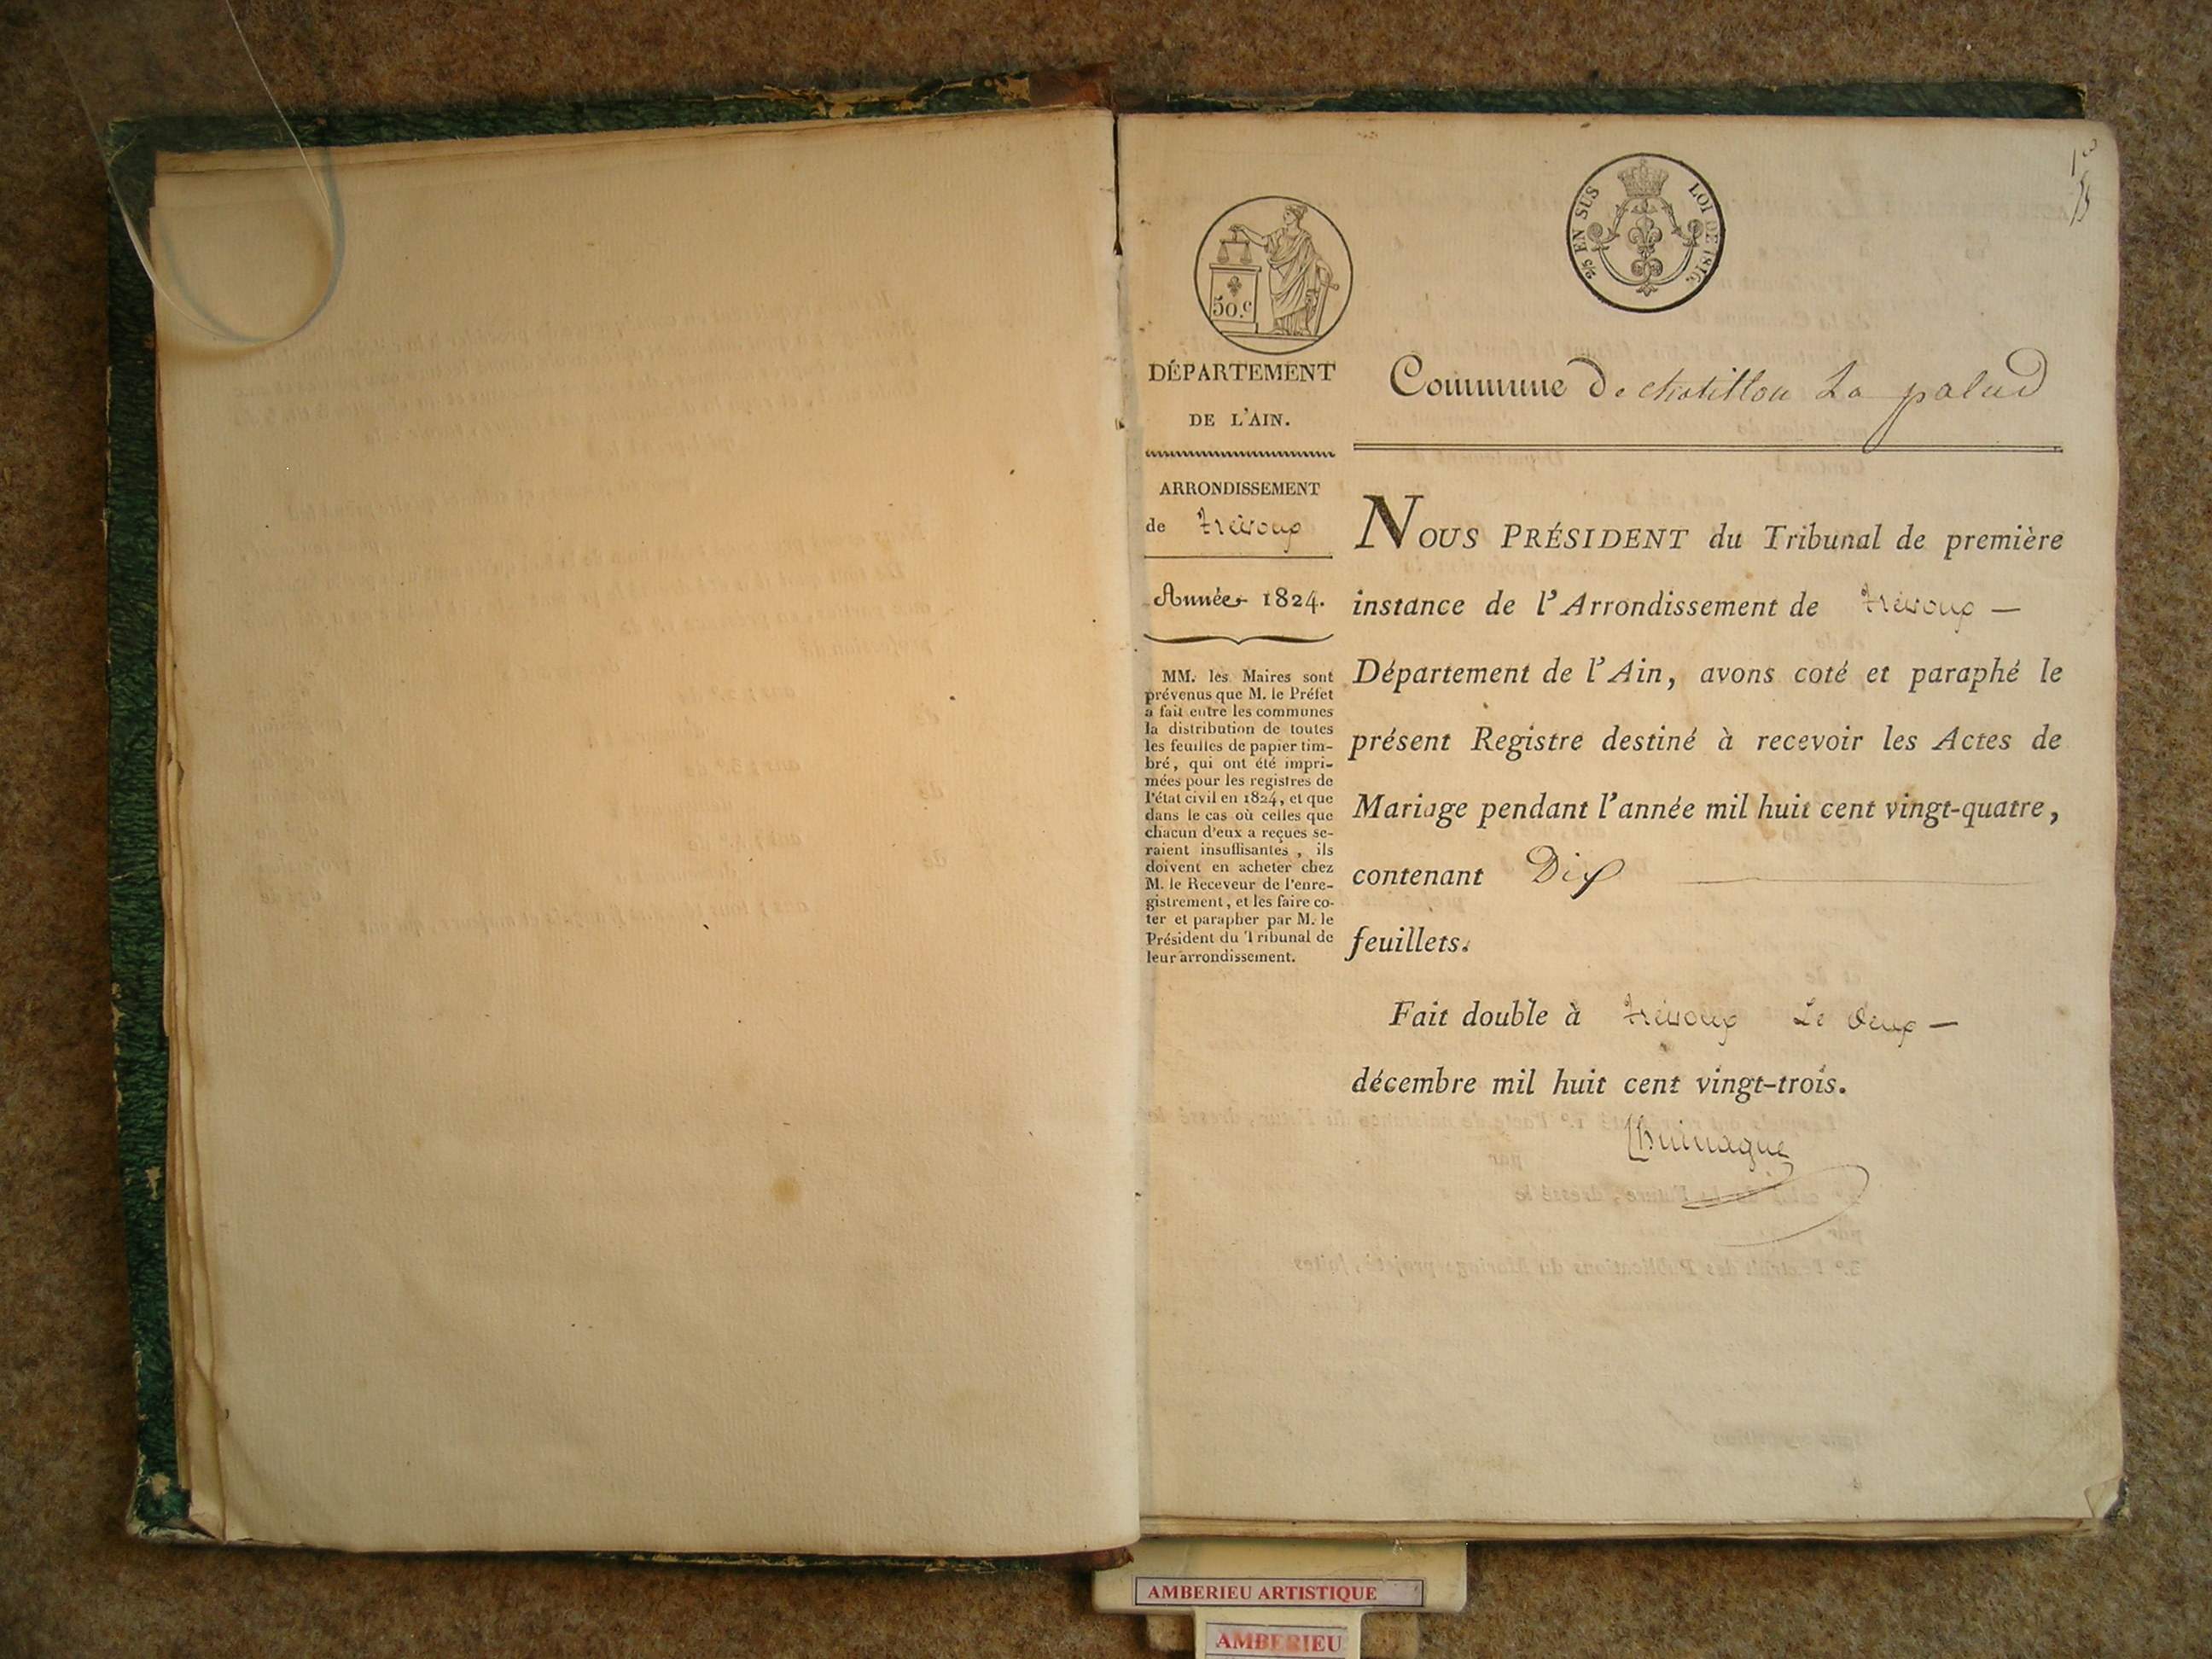 50.c
2/5 EN SUS LOI DE 1816.
DÉPARTEMENT
DE L'AIN.
ARRONDISSEMENT
de Trévoux
Année 1824.
MM. les Maires sont
prévenus que M. le Préfet
a fait entre les communes
la distribution de toutes
les feuilles de papier tim-
bré, qui ont été impri-
mées pour les registres de
l'état civil en 1824, et que
dans le cas où celles que
chacun d'eux a reçues se-
raient insuffisantes, ils
doivent en acheter chez
M. le Receveur de l'enre-
gistrement, et les faire co-
ter et parapher par M. le
Président du Tribunal de
leur arrondissement.
Commune De chatillon La palud
NOUS PRÉSIDENT du Tribunal de première
instance de l'Arrondissement de Trévoux —
Département de l'Ain, avons coté et paraphé le
présent Registre destiné à recevoir les Actes de
Mariage pendant l'année mil huit cent vingt-quatre,
contenant Dix
feuillets.
Fait double à Trévoux Le Deux —
décembre mil huit cent vingt-trois.
AMBERIEU ARTISTIQUE
AMBERIEU